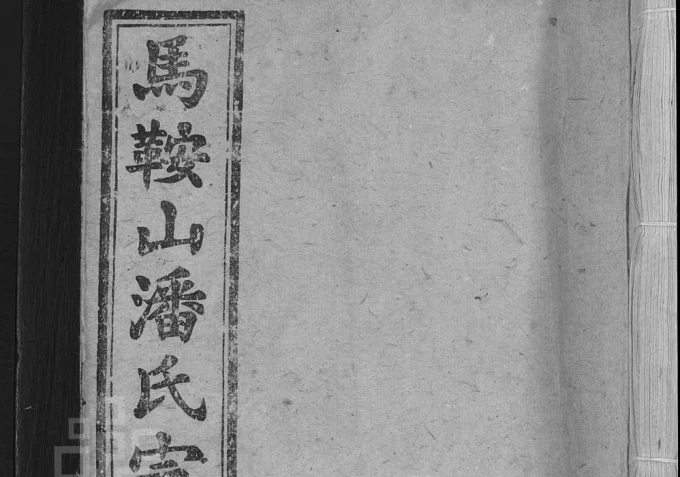 馬鞍山潘氏宗